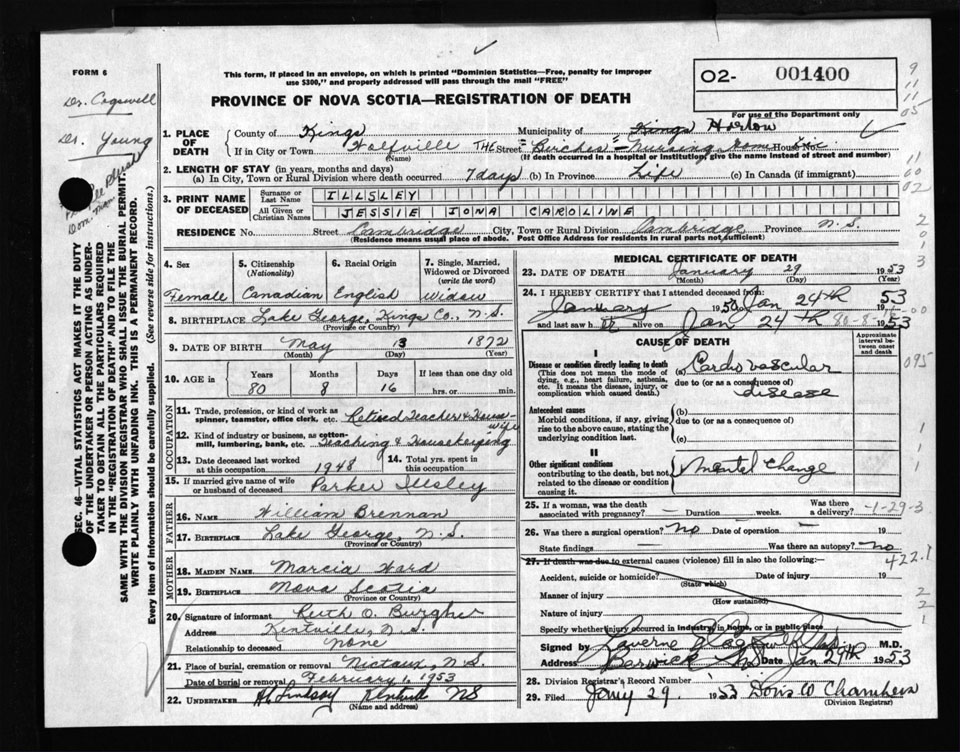 FORM 6
This form, if placed in an envelope, on which is printed "Dominion Statistics—Free, penalty for improper
use $300," and properly addressed will pass through the mail "FREE"
O2- 001400
For use of the Department only
PROVINCE OF NOVA SCOTIA—REGISTRATION OF DEATH
Dr. Cogswell
Dr. Young
SEC. 46—VITAL STATISTICS ACT MAKES IT THE DUTY
OF THE UNDERTAKER OR PERSON ACTING AS UNDER-
TAKER TO OBTAIN ALL THE PARTICULARS REQUIRED
IN THE "REGISTRATION OF DEATH" AND TO FILE THE
SAME WITH THE DIVISION REGISTRAR WHO SHALL ISSUE THE BURIAL PERMIT.
WRITE PLAINLY WITH UNFADING INK. THIS IS A PERMANENT RECORD.
Every item of Information should be carefully supplied. (See reverse side for instructions.)
1. PLACE OF DEATH
County of Kings Municipality of Kings Horton
If in City or Town Wolfville THE Street Birches Nursing Home House No.
(Name) (If death occurred in a hospital or institution, give the name instead of street and number)
2. LENGTH OF STAY (in years, months and days)
(a) In City, Town or Rural Division where death occurred 7 days (b) In Province Life (c) In Canada (if immigrant)
3. PRINT NAME OF DECEASED
Surname or Last Name ILLSLEY
All Given or Christian Names JESSIE IONA CAROLINE
RESIDENCE No. Street Cambridge City, Town or Rural Division Cambridge Province N.S.
(Residence means usual place of abode. Post Office Address for residents in rural parts not sufficient)
4. Sex
Female
5. Citizenship (Nationality)
Canadian
6. Racial Origin
English
7. Single, Married, Widowed or Divorced (write the word)
Widow
8. BIRTHPLACE Lake George, Kings Co., N.S.
(Province or Country)
9. DATE OF BIRTH May 13 1872
(Month) (Day) (Year)
10. AGE in Years Months Days If less than one day old
80 8 16 hrs. or min.
OCCUPATION
11. Trade, profession, or kind of work as spinner, teamster, office clerk, etc. Retired Teacher & Housewife
12. Kind of industry or business, as cotton-mill, lumbering, bank, etc. Teaching & Housekeeping
13. Date deceased last worked at this occupation 1948
14. Total yrs. spent in this occupation
15. If married give name of wife or husband of deceased Parker Illsley
FATHER
16. Name William Brennan
17. Birthplace Lake George, N.S.
(Province or Country)
MOTHER
18. Maiden Name Marcia Ward
19. Birthplace Nova Scotia
(Province or Country)
20. Signature of informant Ruth O. Burgher
Address Kentville, N.S.
Relationship to deceased None
21. Place of burial, cremation or removal Nictaux, N.S.
Date of burial or removal February 1, 1953
22. UNDERTAKER Lindsay Kentville NS
(Name and address)
MEDICAL CERTIFICATE OF DEATH
23. DATE OF DEATH January 29 1953
24. I HEREBY CERTIFY that I attended deceased from:
January 1950 Jan 24th 1953
and last saw h er alive on Jan 24th 1953
CAUSE OF DEATH
Approximate interval between onset and death
I
Disease or condition directly leading to death
(This does not mean the mode of dying, e.g., heart failure, asthenia, etc. It means the disease, injury, or complication which caused death.)
(a) Cardio vascular
due to (or as a consequence of)
disease
Antecedent causes
Morbid conditions, if any, giving rise to the above cause, stating the underlying condition last.
(b)
due to (or as a consequence of)
(c)
II
Other significant conditions
contributing to the death, but not related to the disease or condition causing it.
Mental Change
25. If a woman, was the death associated with pregnancy? — Duration weeks. Was there a delivery? —
26. Was there a surgical operation? No Date of operation — 19
State findings — Was there an autopsy? No
27. If death was due to external causes (violence) fill in also the following:
Accident, suicide or homicide? Date of injury 19
(State which)
Manner of injury
(How sustained)
Nature of injury
Specify whether injury occurred in industry, in home, or in public place
Signed by Laverne M.D.
Address Berwick NS Date Jan 29th 1953
28. Division Registrar's Record Number
29. Filed Jany 29 1953 Doris W Chambers
(Division Registrar)
9
11
11
05
11
60
02
2
0
1
3
095
1
1
1-29-3
422.1
2
2
1